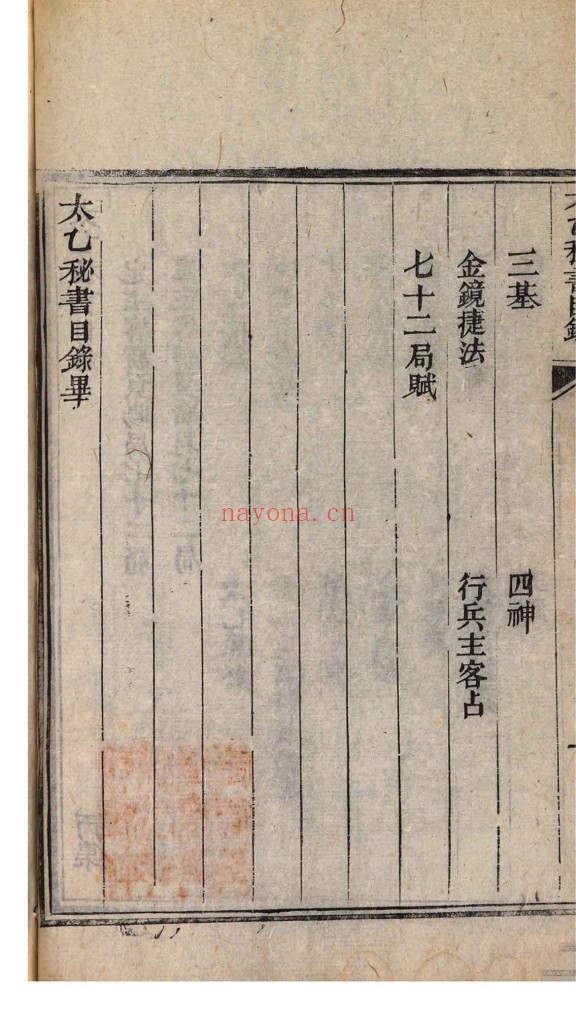 太乙秘書目錄
三基 四神
金鏡捷法 行兵主客占
七十二局賦
太乙秘書目錄畢
nayona.cn